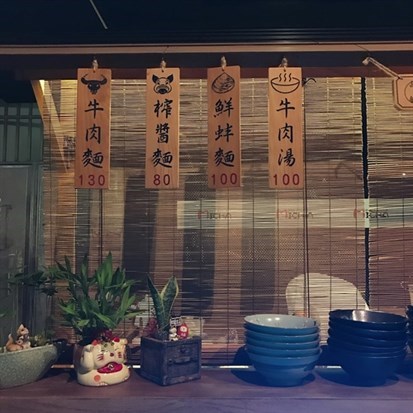 牛肉麵
130
榨醬麵
80
鮮蚌麵
100
牛肉湯
100